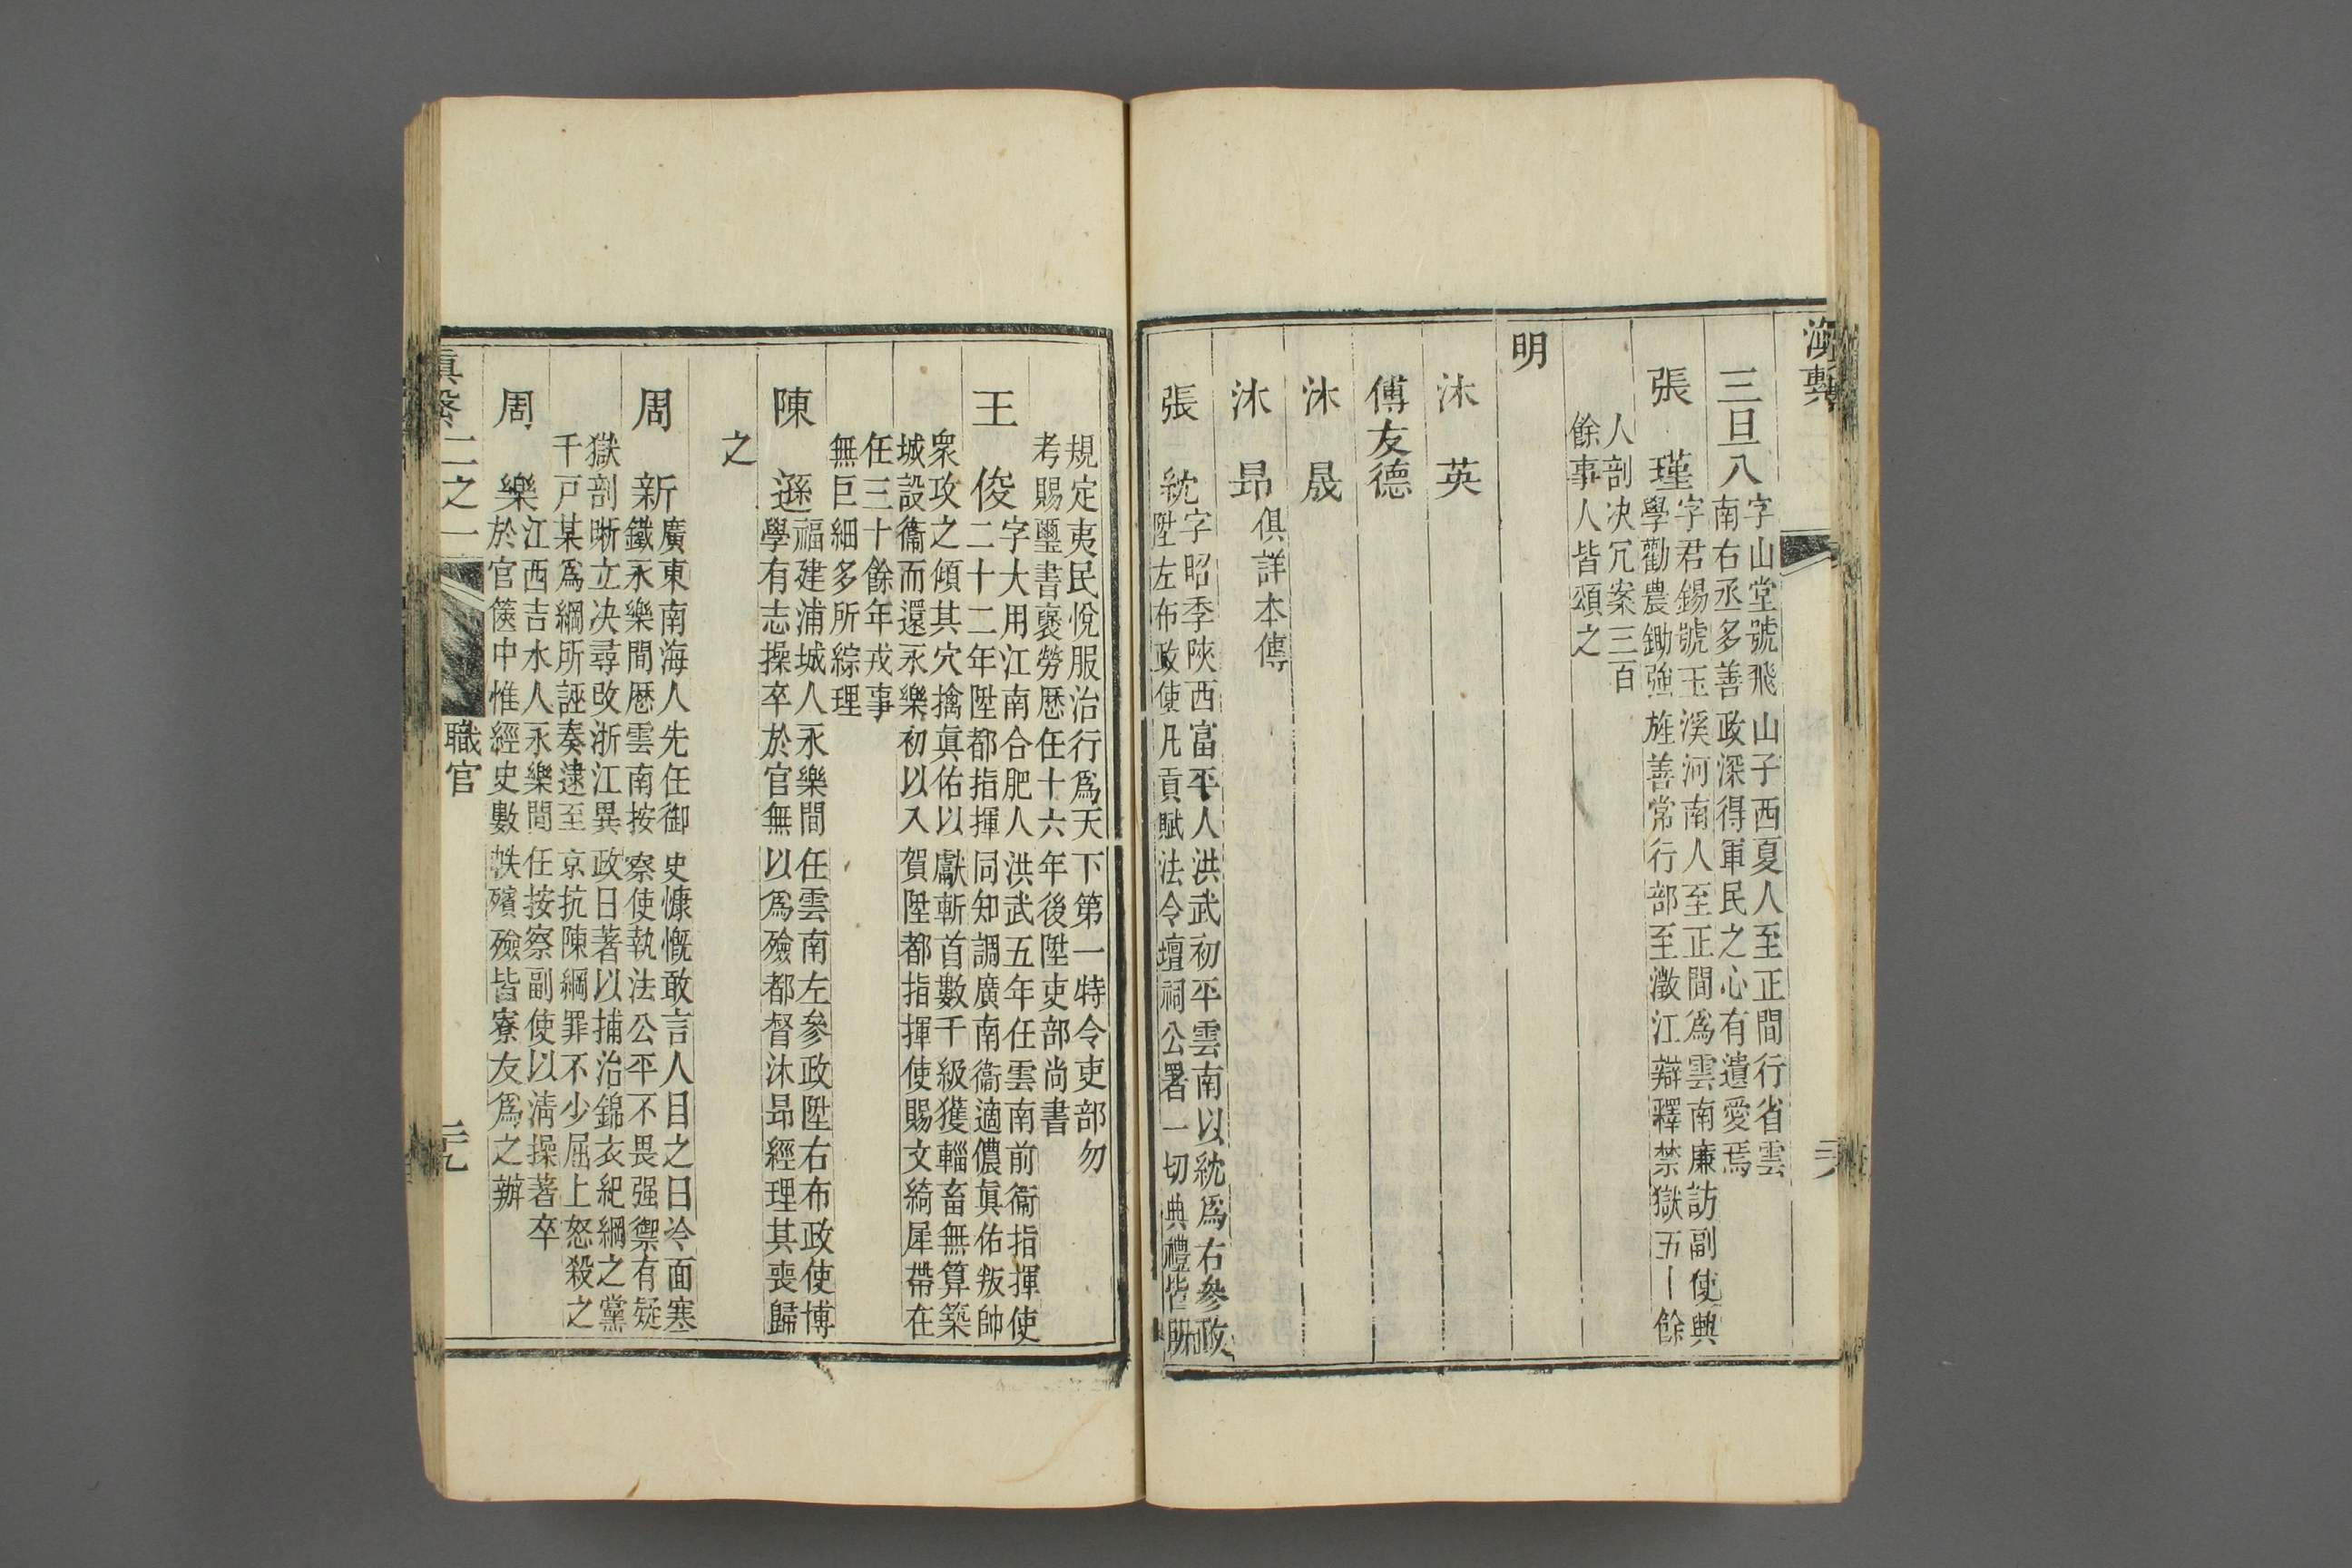 三旦八
字山堂號飛山子西夏人至正間行省雲
南右丞多善政深得軍民之心有遺愛焉
張 瑾
字君錫號玉溪河南人至正間爲雲南廉訪副使興
學勸農鋤強旌善常行部至澂江辯釋禁獄五十餘
人剖决冗案三百
餘事人皆頌之
明
沐 英
傅友德
沐 晟
沐 昻
俱詳本傳
張 紞
字昭季陝西富平人洪武初平雲南以紞爲右參政
陞左布政使凡貢賦法令壇祠公署一切典禮皆所
規定夷民悅服治行爲天下第一特令吏部勿
考賜璽書褒勞歷任十六年後陞吏部尚書
王 俊
字大用江南合肥人洪武五年任雲南前衞指揮使
二十二年陞都指揮同知調廣南衞適儂眞佑叛帥
衆攻之傾其穴擒眞佑以獻斬首數千級獲輜畜無算築
城設衞而還永樂初以入賀陞都指揮使賜文綺犀帶在
任三十餘年戎事
無巨細多所綜理
陳 遜
福建浦城人永樂間任雲南左參政陞右布政使博
學有志操卒於官無以爲殮都督沐昻經理其喪歸
之
周 新
廣東南海人先任御史慷慨敢言人目之日冷面寒
鐵永樂間歷雲南按察使執法公平不畏强禦有疑
獄剖晰立决尋改浙江異政日著以捕治錦衣紀綱之黨
千戸某爲綱所誣奏逮至京抗陳綱罪不少屈上怒殺之
周 樂
江西吉水人永樂間任按察副使以淸操著卒
於官篋中惟經史數帙殯殮皆寮友爲之辦
滇繫二之一
職官